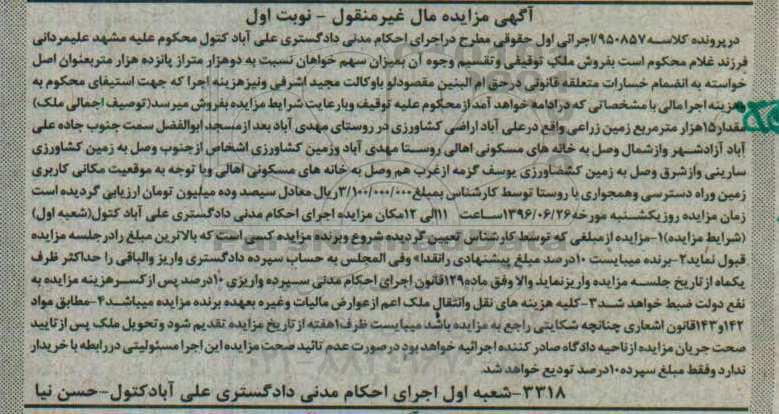 آگهی مزایده مال غیرمنقول - نوبت اول
در پرونده کلاسه ۹۵۰۸۵۷/اجرائی اول حقوقی مطرح دراجرای احکام مدنی دادگستری علی آباد کتول محکوم علیه مشهد علیمردانی
فرزند غلام محکوم است بفروش ملک توقیفی وتقسیم وجوه آن بمیزان سهم خواهان نسبت به دوهزار متراز پانزده هزار متربعنوان اصل
خواسته به انضمام خسارات متعلقه قانونی درحق ام البنین مقصودلو باوکالت مجید اشرفی ونیزهزینه اجرا که جهت استیفای محکوم به
وهزینه اجرا مالی با مشخصاتی که درادامه خواهد آمد ازمحکوم علیه توقیف وبارعایت شرایط مزایده بفروش میرسد(توصیف اجمالی ملک)
مقدار۱۵هزار مترمربع زمین زراعی واقع درعلی آباد اراضی کشاورزی در روستای مهدی آباد بعد ازمسجد ابوالفضل سمت جنوب جاده علی
آباد آزادشهر وازشمال وصل به خانه های مسکونی اهالی روستا مهدی آباد وزمین کشاورزی اشخاص ازجنوب وصل به زمین کشاورزی
سارینی وازشرق وصل به زمین کشاورزی یوسف گزمه ازغرب هم وصل به خانه های مسکونی اهالی وبا توجه به موقعیت مکانی کاربری
زمین وراه دسترسی وهمجواری با روستا توسط کارشناس بمبلغ۳/۱۰۰/۰۰۰/۰۰۰ریال معادل سیصد وده میلیون تومان ارزیابی گردیده است
زمان مزایده روز یکشنبه مورخه۱۳۹۶/۰۶/۲۶ساعت ۱۱الی ۱۲مکان مزایده اجرای احکام مدنی دادگستری علی آباد کتول(شعبه اول)
(شرایط مزایده)۱-مزایده ازمبلغی که توسط کارشناس تعیین گردیده شروع وبرنده مزایده کسی است که بالاترین مبلغ رادرجلسه مزایده
قبول نماید۲-برنده میبایست ۱۰درصد مبلغ پیشنهادی رانقدا» وفی المجلس به حساب سپرده دادگستری واریز والباقی را حداکثر ظرف
یکماه ازتاریخ جلسه مزایده واریزنماید والا وفق ماده۱۲۹قانون اجرای احکام مدنی سپرده واریزی ۱۰درصد پس ازکسرهزینه مزایده به
نفع دولت ضبط خواهد شد۳-کلیه هزینه های نقل وانتقال ملک اعم ازعوارض مالیات وغیره بعهده برنده مزایده میباشد۴-مطابق مواد
۱۴۲و۱۴۳قانون اشعاری چنانچه شکایتی راجع به مزایده باشد میبایست ظرف۱هفته ازتاریخ مزایده تقدیم شود وتحویل ملک پس ازتایید
صحت جریان مزایده ازناحیه دادگاه صادر کننده اجرائیه خواهد بود درصورت عدم تائید صحت مزایده این اجرا مسئولیتی دررابطه با خریدار
ندارد وفقط مبلغ سپرده۱۰درصد تودیع خواهد شد.
۳۳۱۸-شعبه اول اجرای احکام مدنی دادگستری علی آبادکتول-حسن نیا